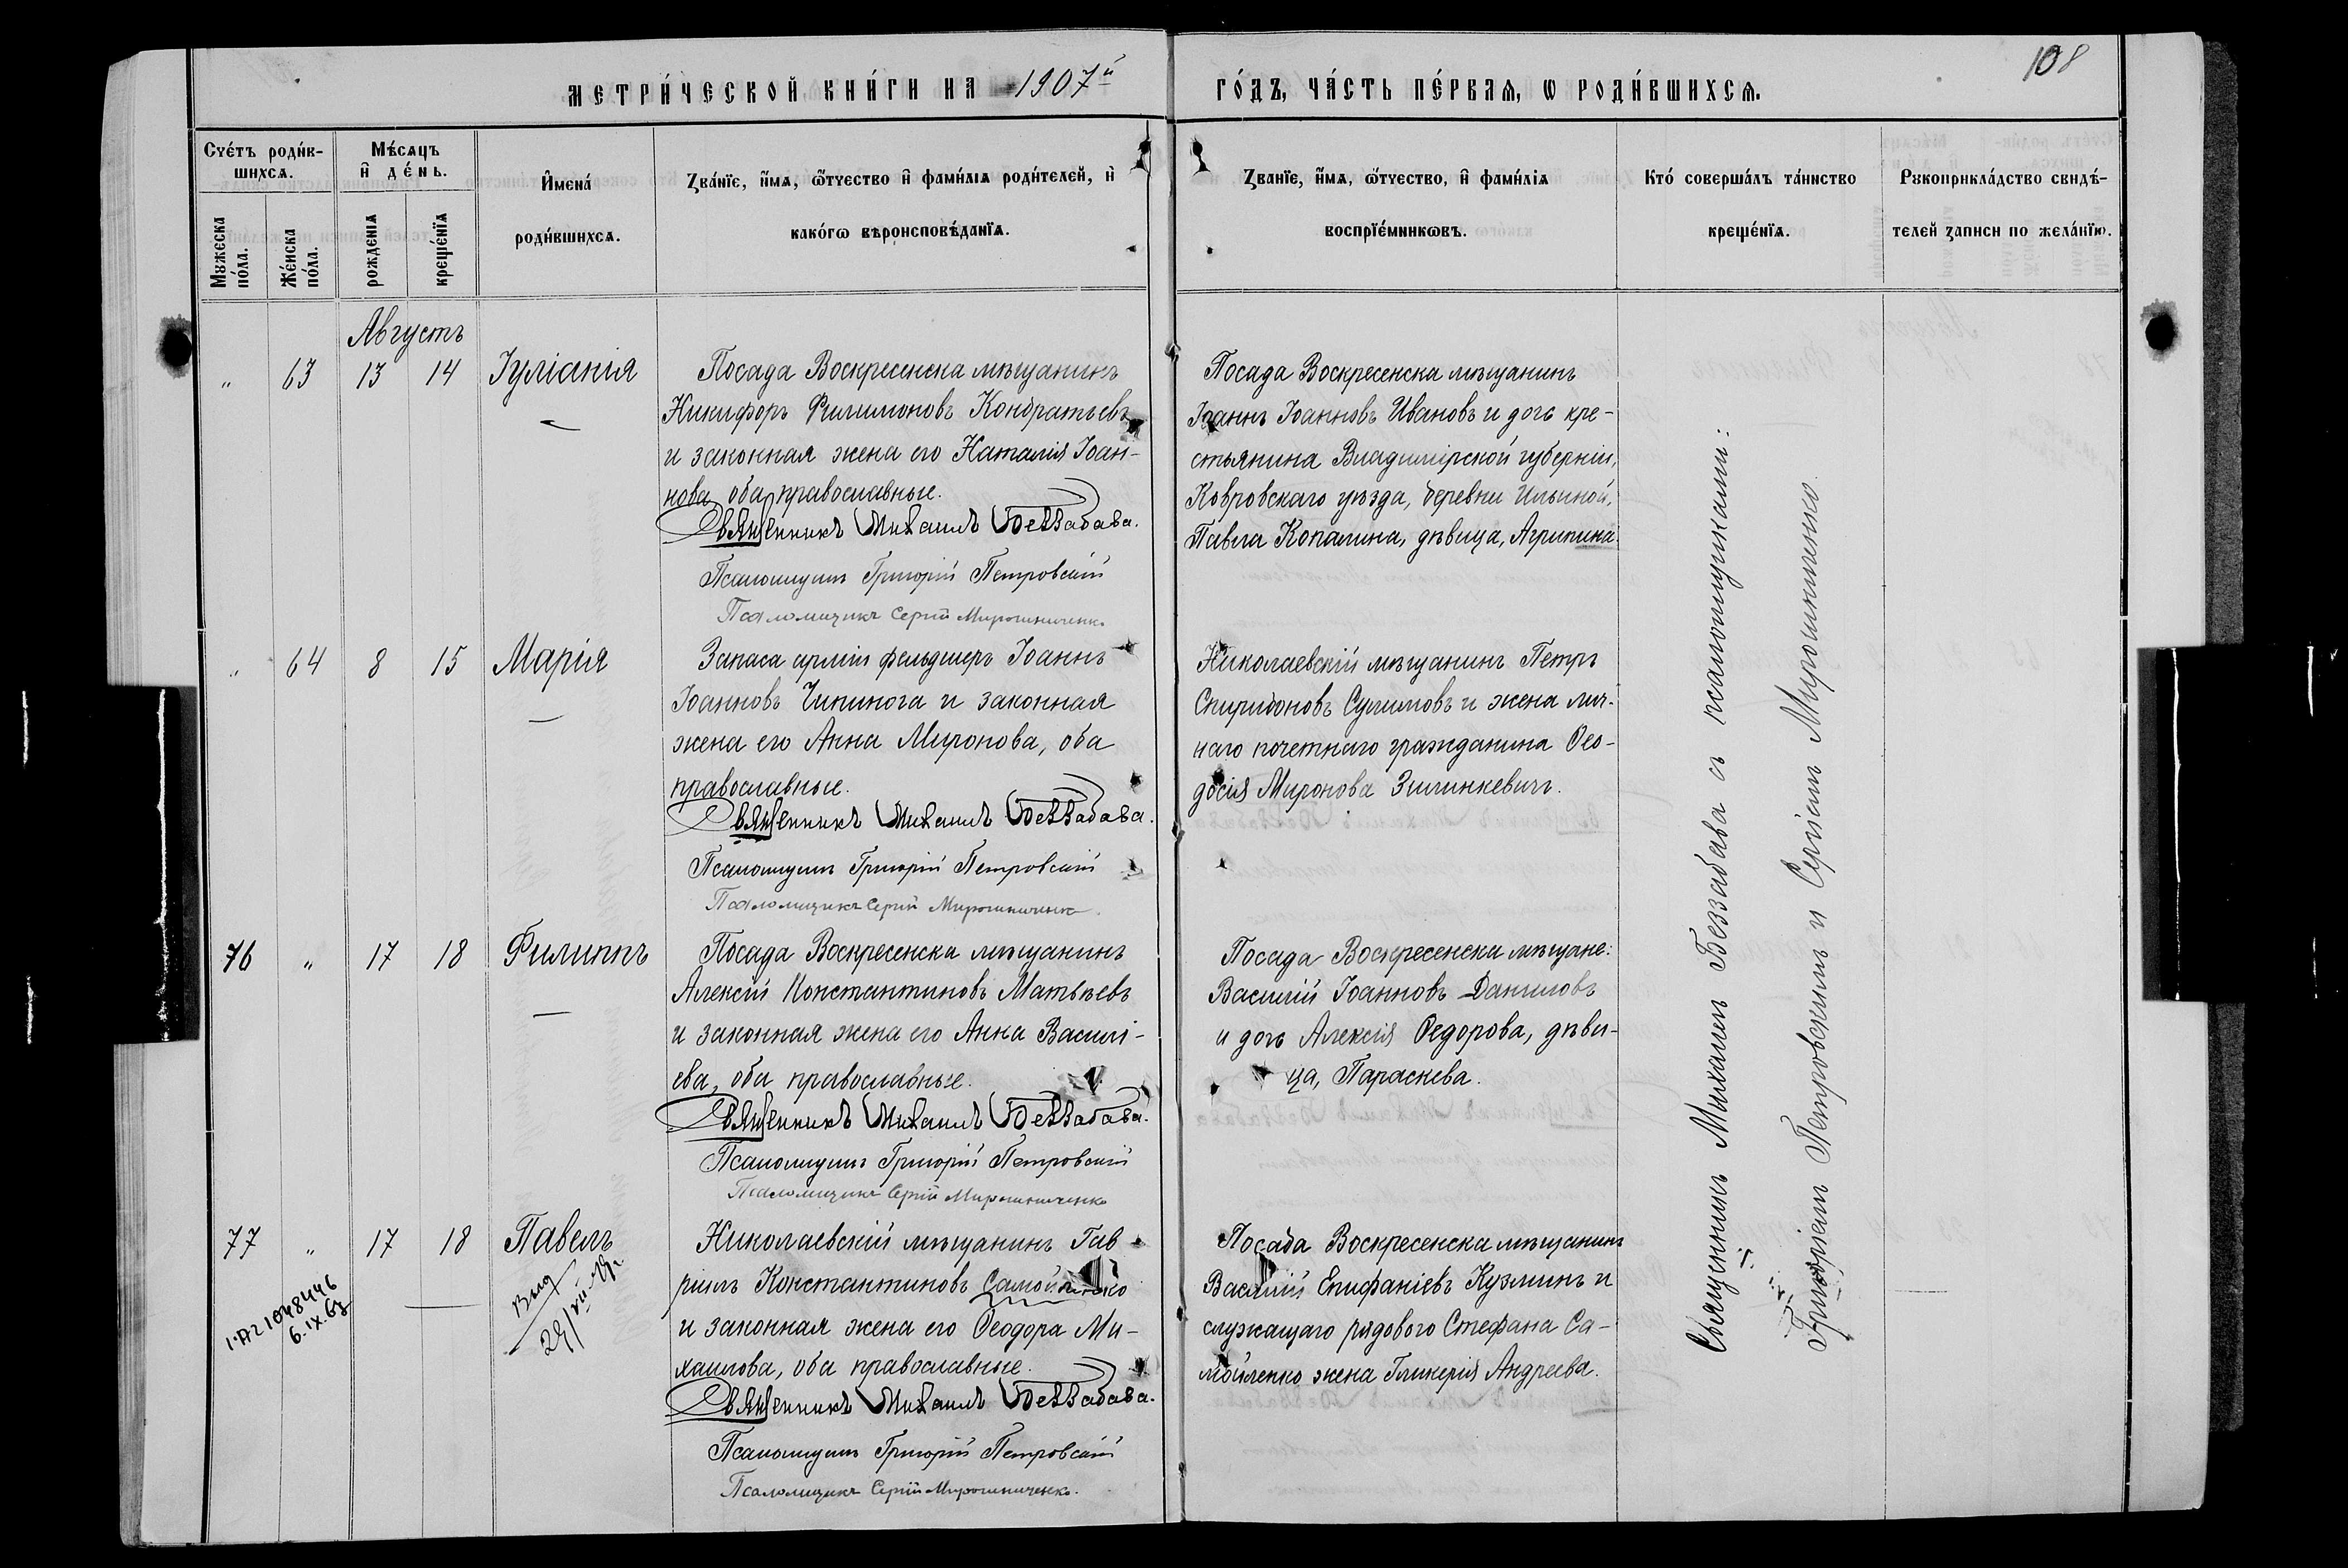 МЕТРИ́ЧЕСКОЙ КНИ́ГИ НА 1907й ГО́ДЪ, ЧА́СТЬ ПЕ́РВАѦ, Ѡ РОДИ́ВШИХСѦ.
108
Сче́тъ роди́в-
шихсѧ.
Мꙋжеска по́ла.
Же́нска по́ла.
Мѣ́сѧцъ
и҆ де́нь.
рожде́нїѧ
креще́нїѧ
И҆мена́
роди́вшихсѧ.
Зва́нїе, и҆́мѧ, ѻ҆́тчество и҆ фами́лїѧ роди́телей, и҆
како́гѡ вѣроисповѣ́данїѧ.
Зва́нїе, и҆́мѧ, ѻ҆́тчество, и҆ фами́лїѧ
воспрїе́мникѡвъ.
Кто́ соверша́лъ та́инство
креще́нїѧ.
Рꙋкоприкла́дство свидѣ́-
телей записи по жела́нїю.
Августъ
" 63 13 14 Іуліанія
Посада Воскресенска мѣщанинъ
Никифоръ Филимоновъ Кондратьевъ
и законная жена его Наталія Іоан-
нова, оба православные.
Священникъ Михаилъ Беззабава.
Псаломщикъ Григорій Петровскій
Псаломщикъ Сергій Мирошниченко
Посада Воскресенска мѣщанинъ
Іоаннъ Іоанновъ Ивановъ и дочь кре-
стьянина Владимірской губерніи,
Ковровскаго уѣзда, деревни Ильиной,
Павла Копалина, дѣвица, Агрипина.
" 64 8 15 Марія
Запаса арміи фельдшеръ Іоаннъ
Іоанновъ Чипинога и законная
жена его Анна Миронова, оба
православные.
Священникъ Михаилъ Беззабава.
Псаломщикъ Григорій Петровскій
Псаломщикъ Сергій Мирошниченко.
Николаевскій мѣщанинъ Петръ
Спиридоновъ Сулимовъ и жена лич-
наго почетнаго гражданина Ѳео-
досія Миронова Зилинкевичъ.
76 " 17 18 Филиппъ
Посада Воскресенска мѣщанинъ
Алексій Константиновъ Матвѣевъ
и законная жена его Анна Василі-
ева, оба православные.
Священникъ Михаилъ Беззабава.
Псаломщикъ Григорій Петровскій
Псаломщикъ Сергій Мирошниченко
Посада Воскресенска мѣщане:
Василій Іоанновъ Даниловъ
и дочь Алексія Ѳедорова, дѣви-
ца, Параскева.
77 " 17 18 Павелъ
6.IX.63
Николаевскій мѣщанинъ Гав
ріилъ Константиновъ Самойленко
и законная жена его Ѳеодора Ми-
хаилова, оба православные.
Священникъ Михаилъ Беззабава.
Псаломщикъ Григорій Петровскій
Псаломщикъ Сергій Мирошниченко.
Посада Воскресенска мѣщанинъ
Василій Епифаніевъ Кузминъ и
служащаго рядового Стефана Са-
мойленко жена Гликерія Андреева.
Священникъ Михаилъ Беззабава съ псаломщиками:
Григоріемъ Петровскимъ и Сергіемъ Мирошниченко.